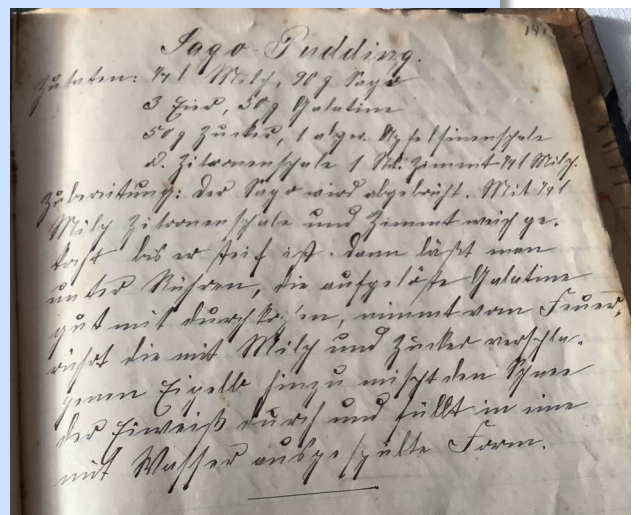 Sago-Pudding.
Zutaten: ¾ l Milch, 90 g Sago
3 Eier, 50 g Galatine
50 g Zucker, 1 abger. Apfelsinenschale
o. Zitronenschale 1 Stk. Zimmt ¼ l Milch.
Zubereitung: Der Sago wird abgebrüht. Mit ¾ l
Milch Zitronenschale und Zimmt weich ge-
kocht bis er steif ist. dann läßt man
unter Rühren, die aufgelöste Galatine
gut mit durchkochen, nimmt vom Feuer,
rührt die mit Milch und Zucker verschla-
genen Eigelb hinzu mischt den Schnee
der Eiweiß durch und füllt in eine
mit Wasser ausgespülte Form.